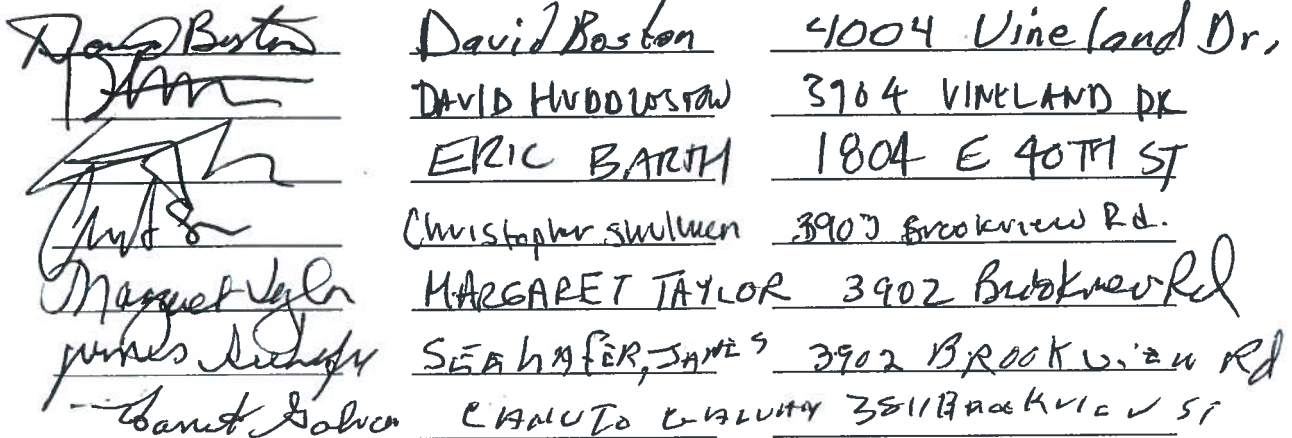 David Boston David Boston 4004 Vineland Dr,
DAVID HUDDLESTON 3904 VINELAND DR
ERIC BARTH 1804 E 40TH ST
Christopher Shulman 3903 Brookview Rd.
Margaret Taylor MARGARET TAYLOR 3902 Brookview Rd
James Seehafer SEEhAfER, JAMES 3902 BROOKview Rd
CANUTO GALVAN 3811 BrooKview ST